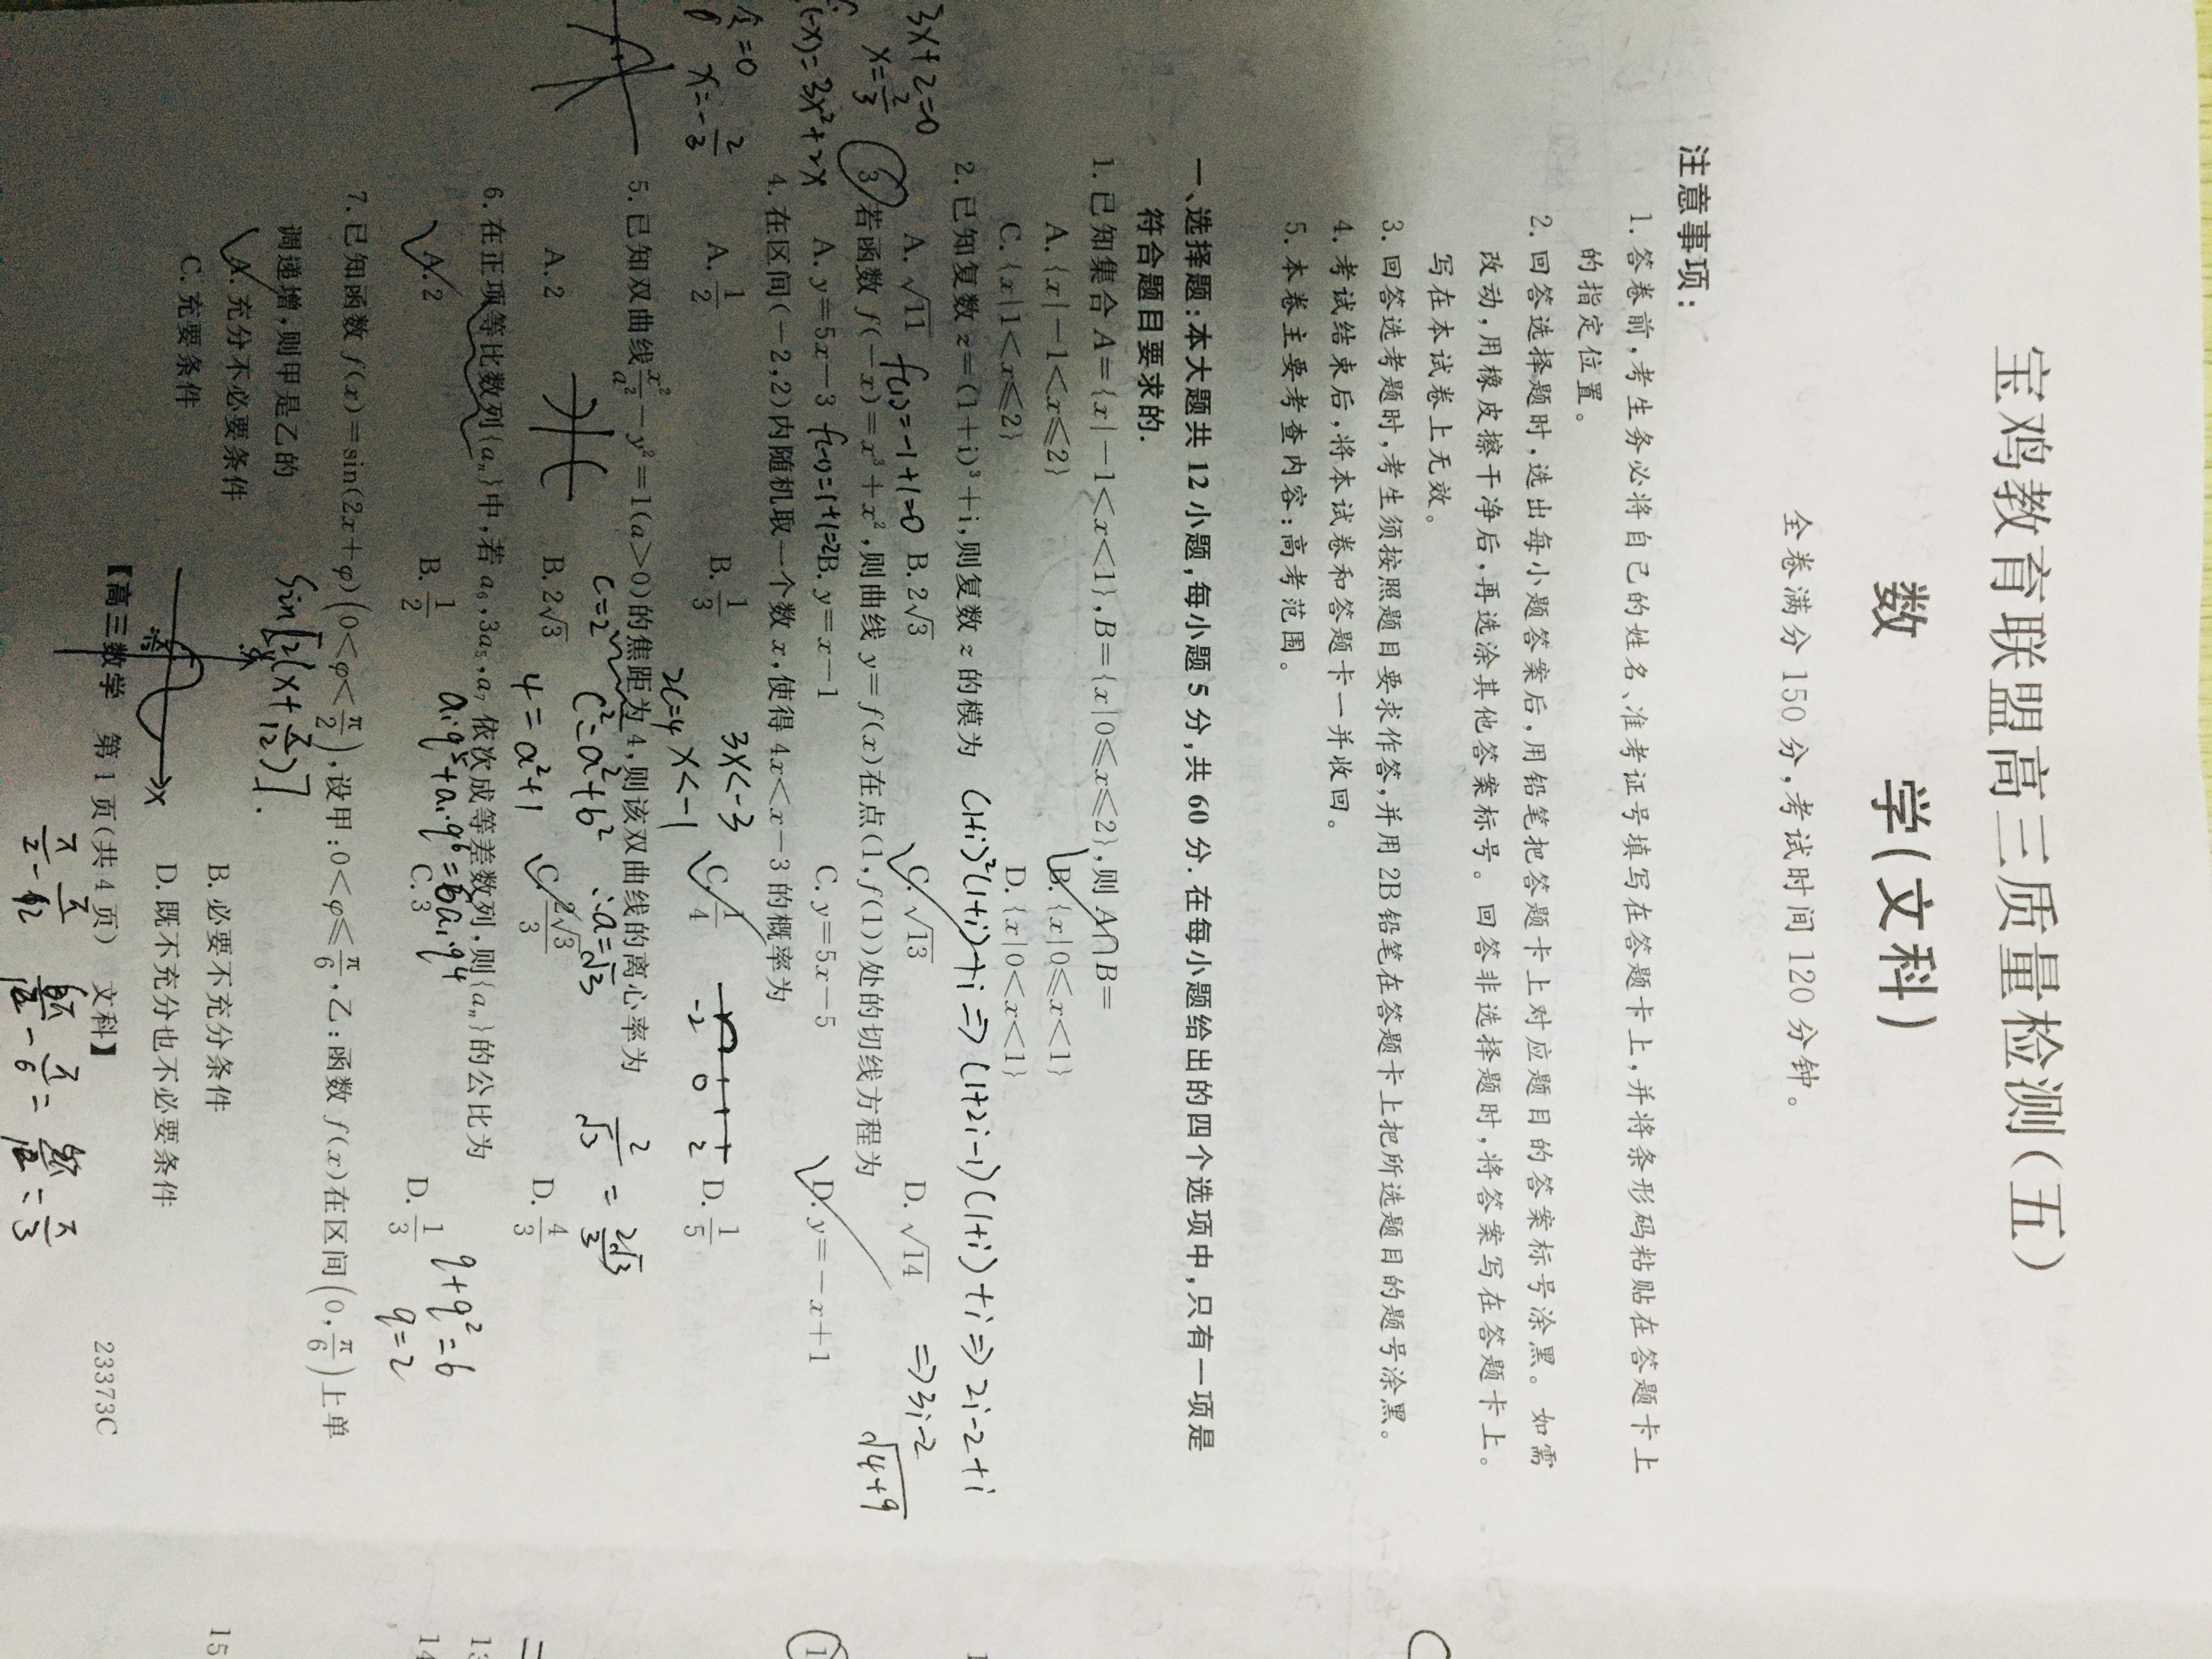 宝鸡教育联盟高三质量检测(五)
数 学(文科)
全卷满分150分,考试时间120分钟。
注意事项:
1. 答卷前,考生务必将自己的姓名、准考证号填写在答题卡上,并将条形码粘贴在答题卡上
的指定位置。
2. 回答选择题时,选出每小题答案后,用铅笔把答题卡上对应题目的答案标号涂黑。如需
改动,用橡皮擦干净后,再选涂其他答案标号。回答非选择题时,将答案写在答题卡上。
写在本试卷上无效。
3. 回答选考题时,考生须按照题目要求作答,并用2B铅笔在答题卡上把所选题目的题号涂黑。
4. 考试结束后,将本试卷和答题卡一并收回。
5. 本卷主要考查内容:高考范围。
一、选择题:本大题共12小题,每小题5分,共60分.在每小题给出的四个选项中,只有一项是
符合题目要求的.
1. 已知集合A={x|-1<x<1},B={x|0≤x≤2},则A∩B=
A. {x|-1<x≤2} B. {x|0≤x<1}
C. {x|1<x≤2} D. {x|0<x<1}
2. 已知复数z=(1+i)³+i,则复数z的模为 (1+i)²(1+i)+i⇒(1+2i-1)(1+i)+i⇒2i-2+i
⇒3i-2
A. √11 B. 2√3 C. √13 D. √14
√4+9
f(1)=-1+1=0
3x+2=0
x=2/3
3 若函数f(-x)=x³+x²,则曲线y=f(x)在点(1,f(1))处的切线方程为
(-x)=3x²+2x
A. y=5x-3 f(-1)=1+1=2 B. y=x-1 C. y=5x-5 D. y=-x+1
4. 在区间(-2,2)内随机取一个数x,使得4x<x-3的概率为
=0
x=-2/3
A. 1/2 B. 1/3 C. 1/4 D. 1/5
3x<-3
x<-1
-2 0 2
2c=4
5. 已知双曲线x²/a²-y²=1(a>0)的焦距为4,则该双曲线的离心率为
c=2 c²=a²+b² ∴a=√3 2/√3=2√3/3
A. 2 B. 2√3 C. 2√3/3 D. 4/3
4=a²+1
6. 在正项等比数列{aₙ}中,若a₆,3a₅,a₇依次成等差数列,则{aₙ}的公比为
a₁q⁵+a₁q⁶=6a₁q⁴ q+q²=6
A. 2 B. 1/2 C. 3 D. 1/3
q=2
7. 已知函数f(x)=sin(2x+φ)(0<φ<π/2),设甲:0<φ≤π/6,乙:函数f(x)在区间(0,π/6)上单
调递增,则甲是乙的
sin[2(x+π/12)].
A. 充分不必要条件 B. 必要不充分条件
C. 充要条件 D. 既不充分也不必要条件
x
【高三数学 第1页(共4页) 文科】 23373C
15